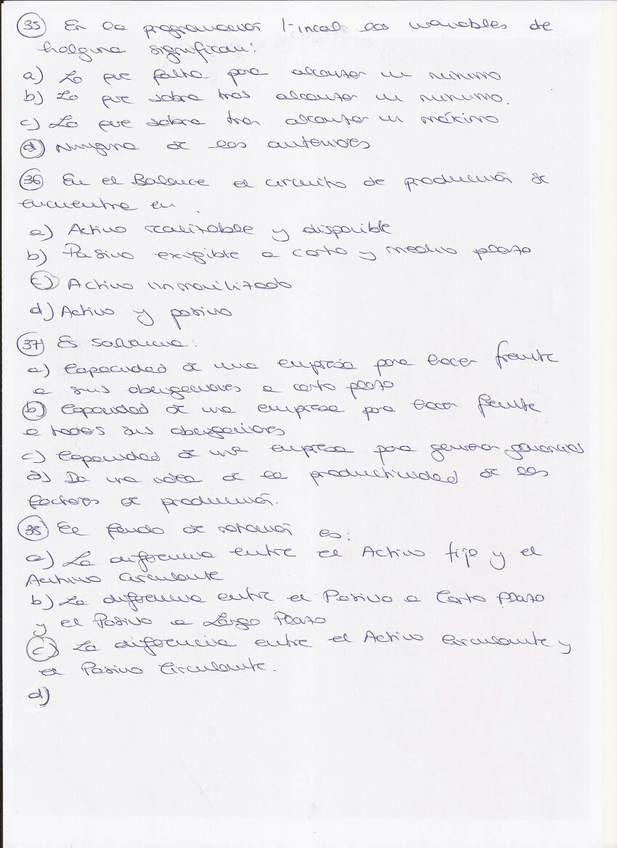 35) En la programación lineal las variables de
holgura significan:
a) Lo que falta para alcanzar un mínimo
b) Lo que sobra tras alcanzar un mínimo.
c) Lo que sobra tras alcanzar un máximo
d) Ninguna de las anteriores
36) En el Balance el circuito de producción se
encuentra en:
a) Activo realizable y disponible
b) Pasivo exigible a corto y medio plazo
c) Activo inmovilizado
d) Activo y pasivo
37) Es Solvencia:
a) Capacidad de una empresa para hacer frente
a sus obligaciones a corto plazo
b) Capacidad de una empresa para hacer frente
a todas sus obligaciones
c) Capacidad de una empresa para generar ganancias
d) Da una idea de la productividad de los
factores de producción.
38) El fondo de rotación es:
a) La diferencia entre el Activo fijo y el
Activo Circulante
b) La diferencia entre el Pasivo a Corto Plazo
y el Pasivo a Largo Plazo
c) La diferencia entre el Activo Circulante y
el Pasivo Circulante.
d)